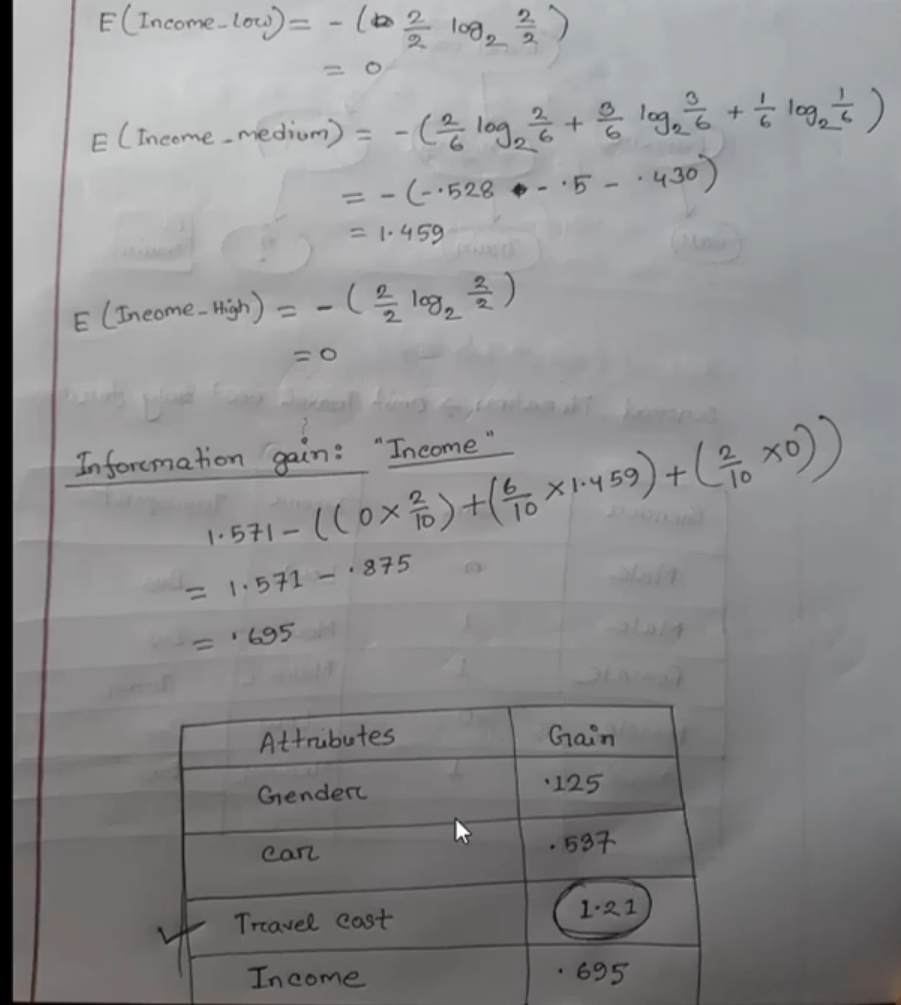 E (Income-Low) = - ( 2/2 log₂ 2/2 )
= 0
E (Income-medium) = - ( 2/6 log₂ 2/6 + 3/6 log₂ 3/6 + 1/6 log₂ 1/6 )
= - (- .528 - .5 - .430)
= 1.459
E (Income-High) = - ( 2/2 log₂ 2/2 )
= 0
Information gain: "Income"
1.571 - ((0 × 2/10) + (6/10 × 1.459) + (2/10 × 0))
= 1.571 - .875
= .695
Attributes Gain
Gender .125
car .537
✓ Travel cost 1.21
Income .695